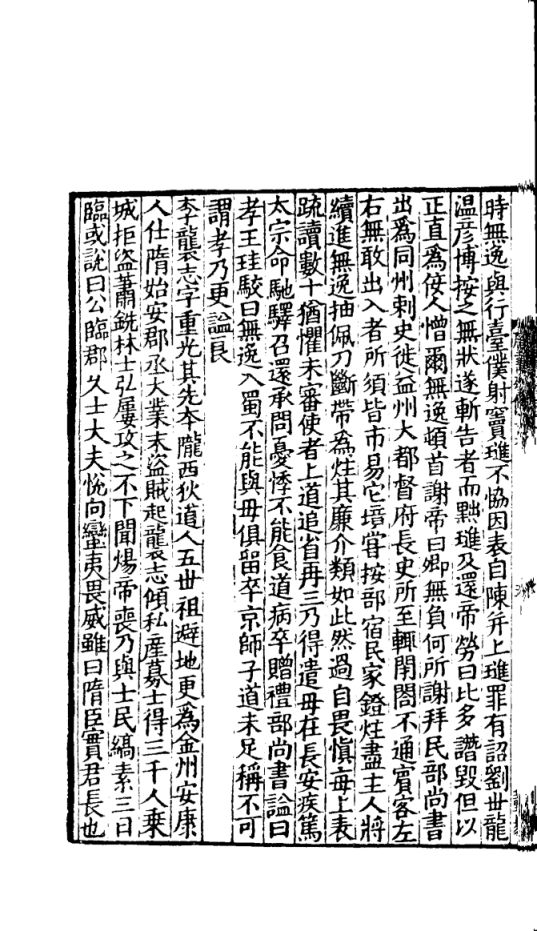 時無逸與行臺僕射竇璡不恊因表自陳并上璡罪有詔劉世龍
温彦博按之無狀遂斬告者而黜璡及還帝勞曰比多譖毀但以
正直爲佞人憎爾無逸頓首謝帝曰卿無負何所謝拜民部尚書
出爲同州刺史徙益州大都督府長史所至輒閉閤不通賓客左
右無敢出入者所須皆市易它境甞按部宿民家鐙炷盡主人將
續進無逸抽佩刀斷帶為炷其廉介類如此然過自畏愼每上表
疏讀數十猶懼未審使者上道追省再三乃得遣母在長安疾篤
太宗命馳驛召還承問憂悸不能食道病卒贈禮部尚書謚曰
孝王珪駮曰無逸入蜀不能與母俱留卒京師子道未足稱不可
謂孝乃更謚良
李襲志字重光其先本隴西狄道人五世祖避地更爲金州安康
人仕隋始安郡丞大業末盜賊起襲志傾私産募士得三千人乗
城拒盜蕭銑林士弘屢攻之不下聞煬帝喪乃與士民縞素三日
臨或說曰公臨郡久士大夫恱向蠻夷畏威雖曰隋臣實君長也